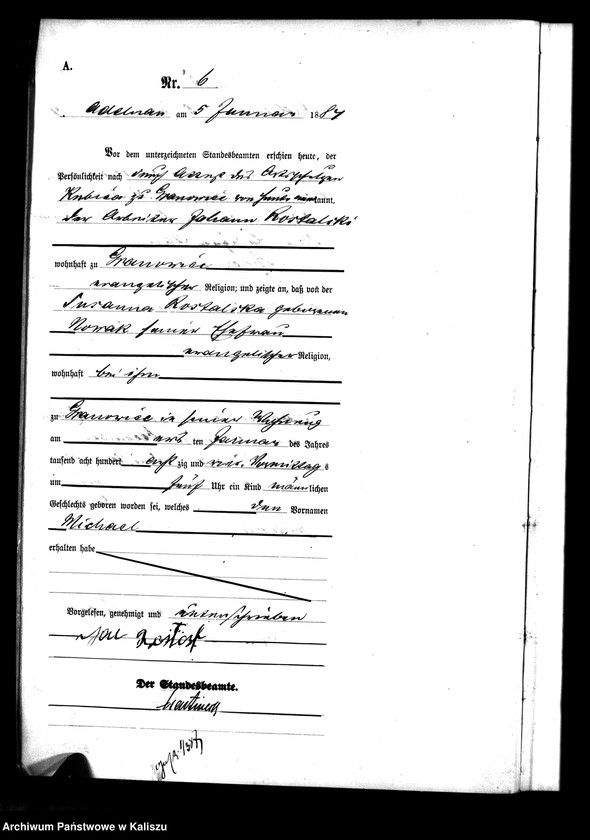 A.
Nr. 6
Adelnau am 5 Januar 1884
Vor dem unterzeichneten Standesbeamten erschien heute, der
Persönlichkeit nach durch des
zu Granowiec von kannt,
der Arbeiter Johann Rostalski
wohnhaft zu Granowiec
evangelischer Religion, und zeigte an, daß von der
Susanna Rostalska geborenen
Nowak seiner Ehefrau
evangelischer Religion,
wohnhaft bei ihm
zu Granowiec in seiner Wohnung
am ersten Januar des Jahres
tausend acht hundert acht zig und vier Vormittag s
um fünf Uhr ein Kind männlichen
Geschlechts geboren worden sei, welches den Vornamen
Michael
erhalten habe
Vorgelesen, genehmigt und unterschrieben
Der Standesbeamte.
Archiwum Państwowe w Kaliszu